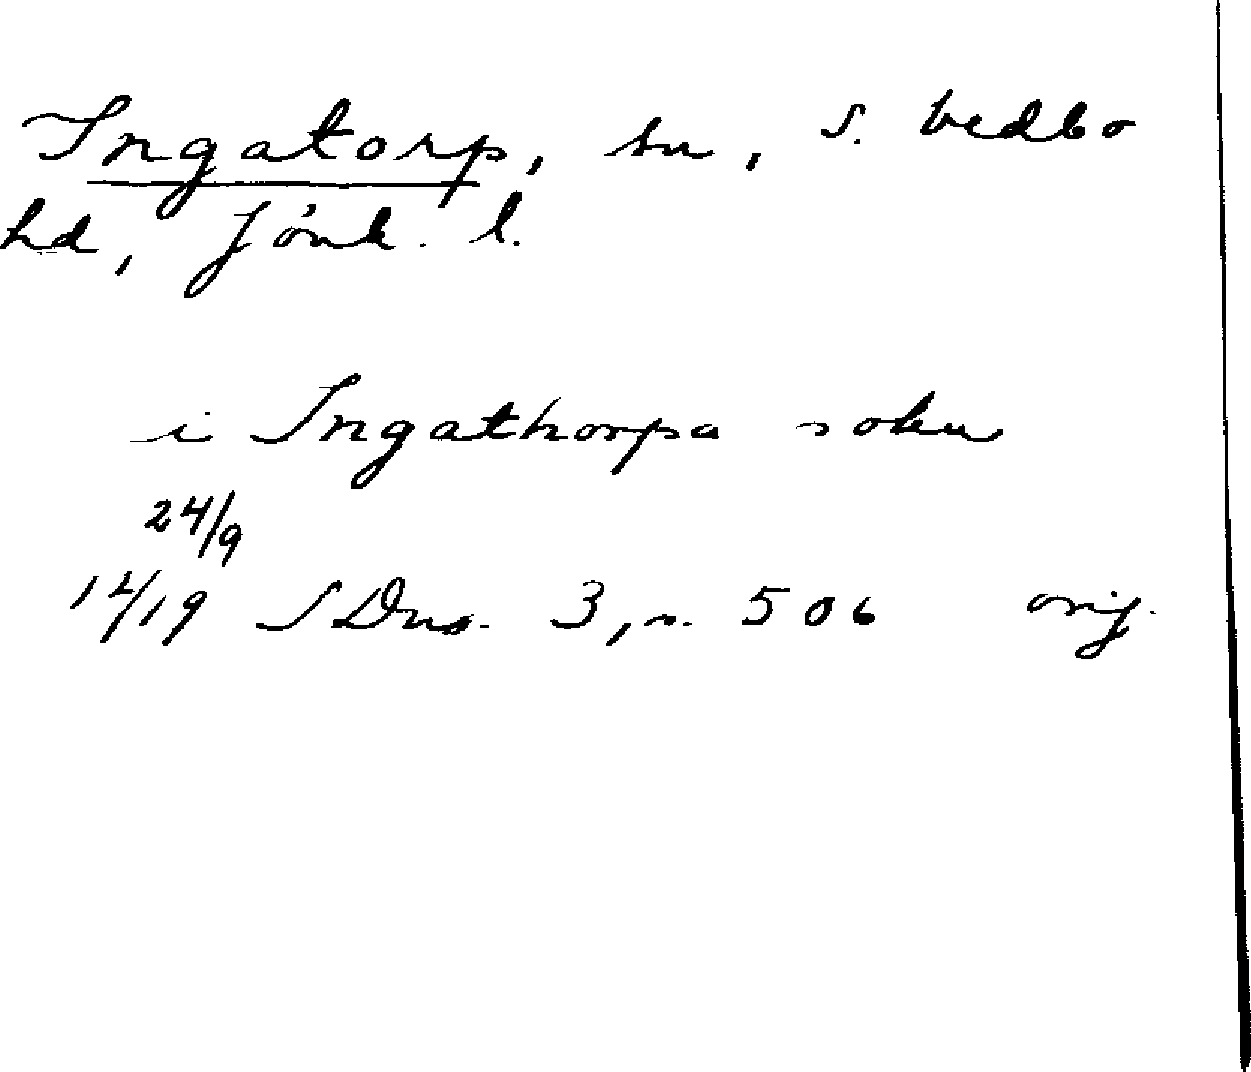 Ingatorp, sn, S. Vedbo
hd, Jönk. l.
i Ingathorpa sokn
24/9
14/19 SDns. 3, n. 506 orig.